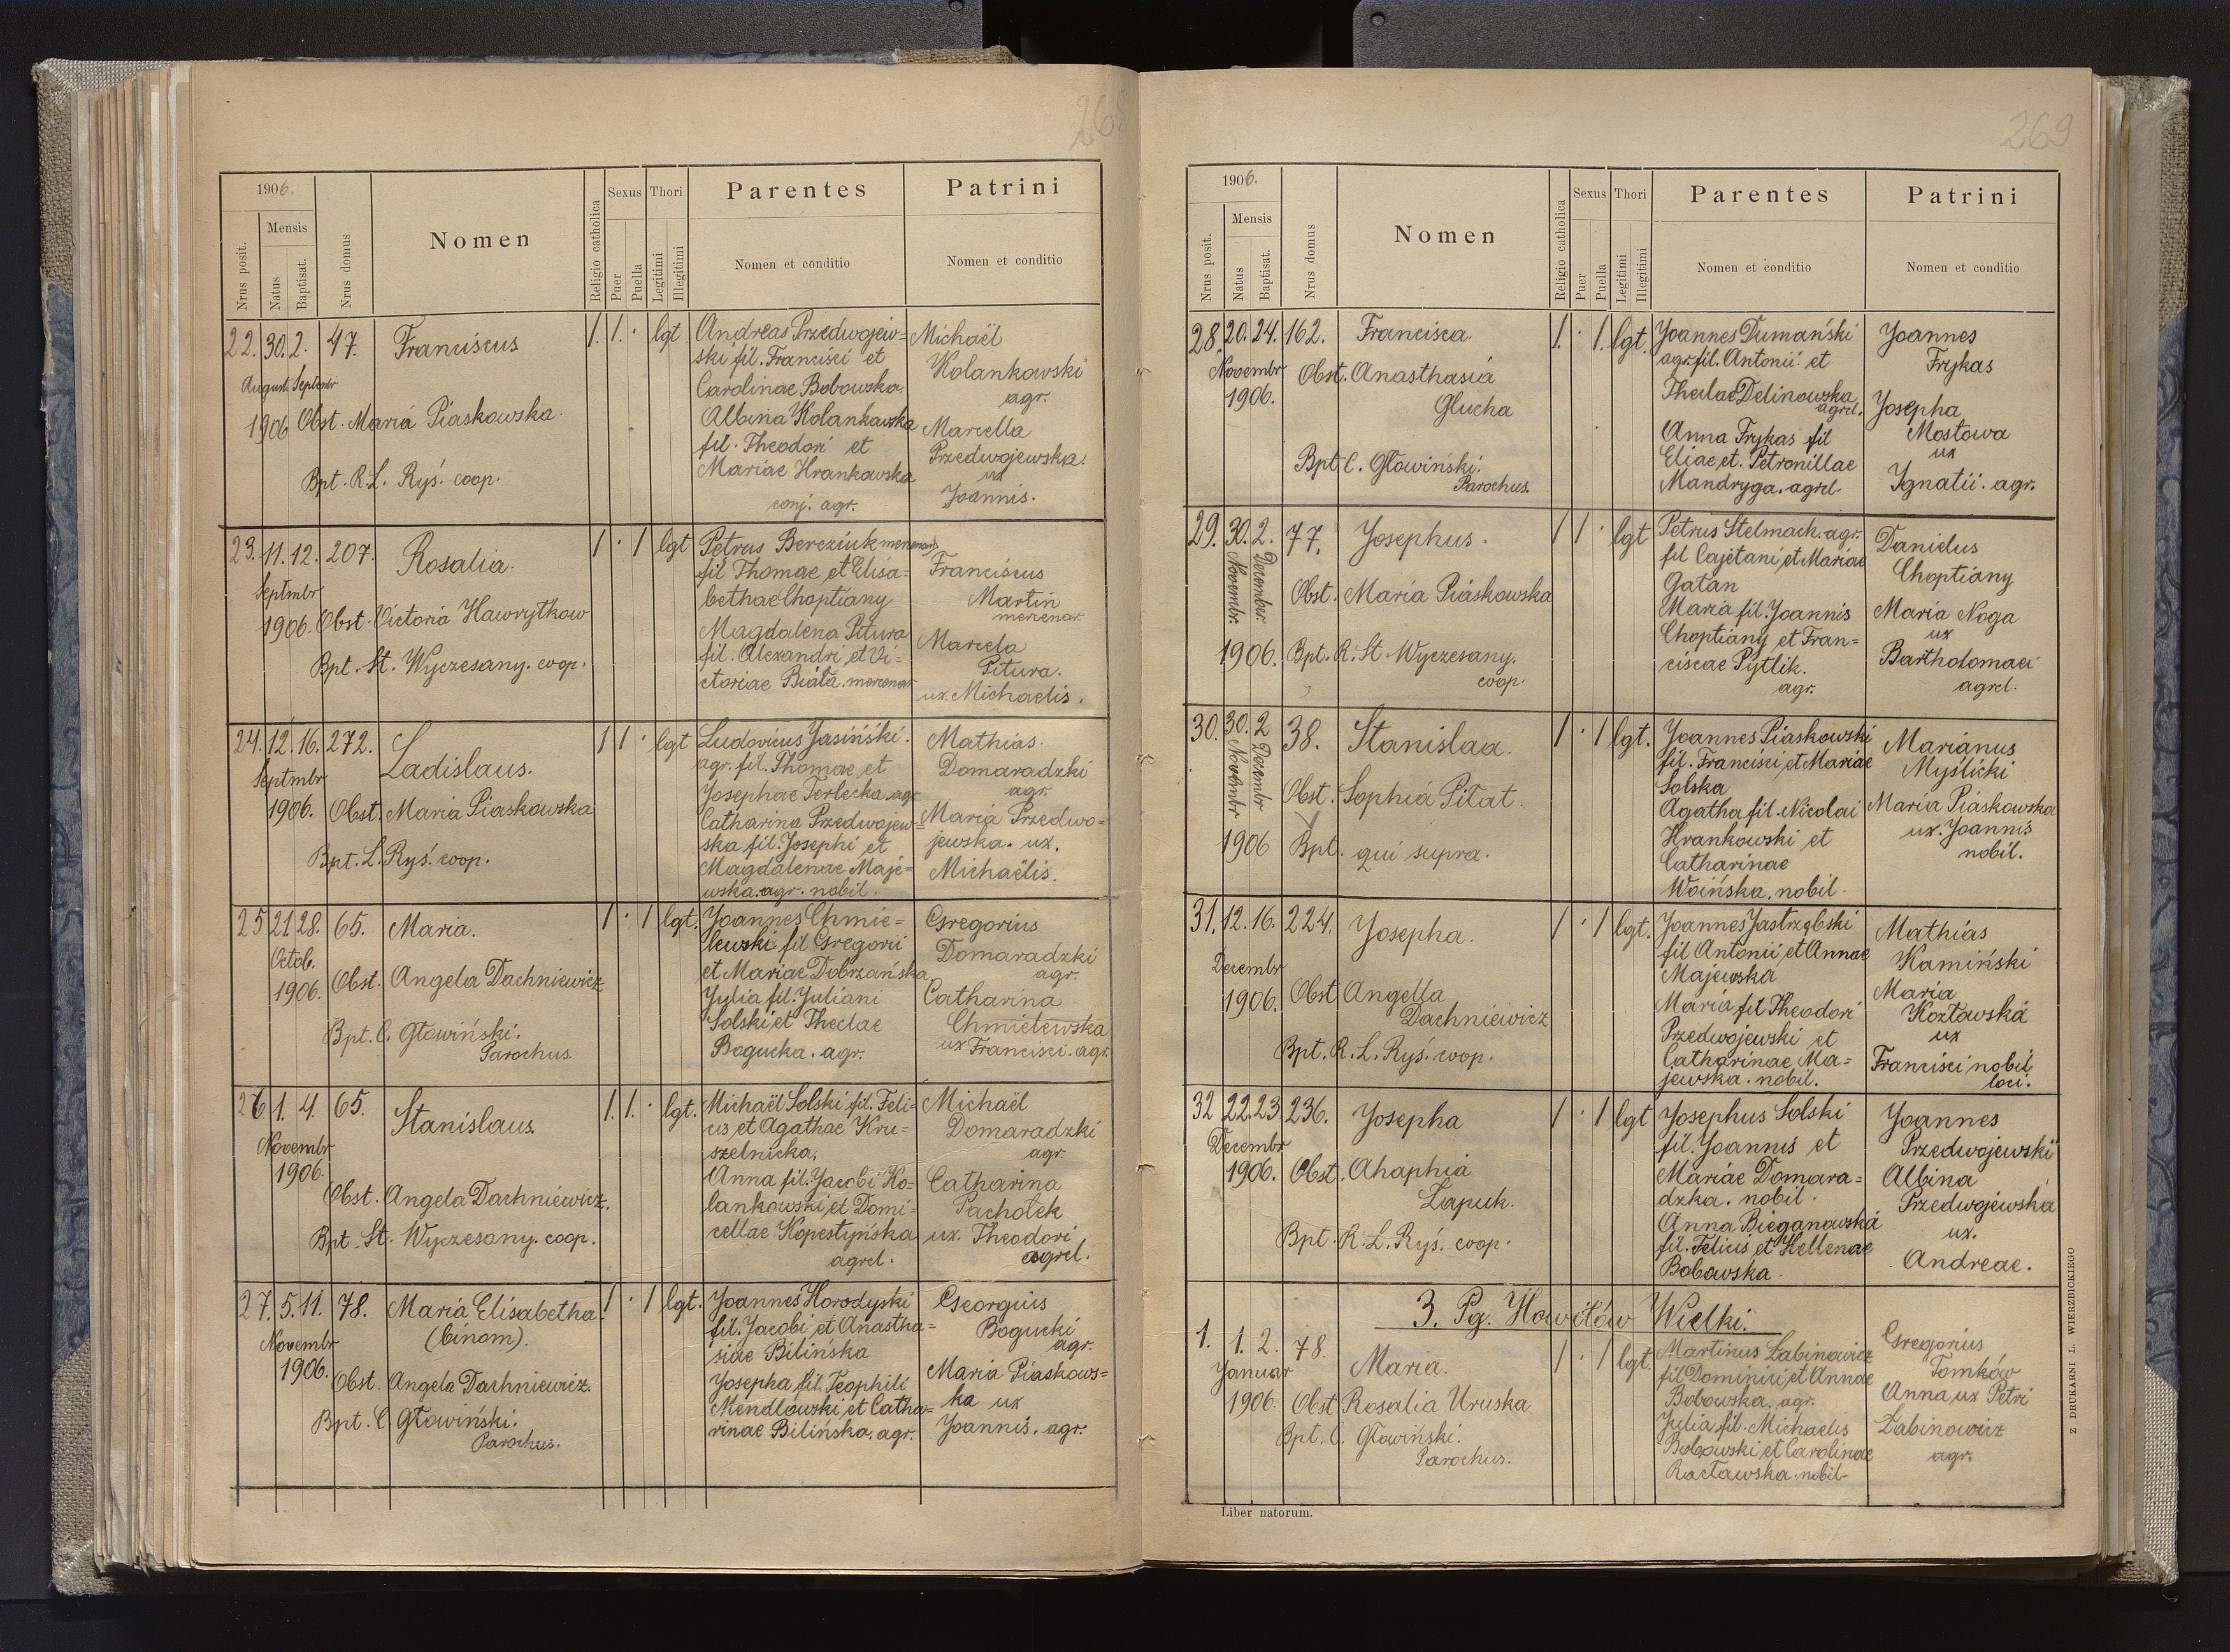 268
1906.
Nrus posit.
Mensis
Natus
Baptisat.
Nrus domus
Nomen
Religio catholica
Sexus
Puer
Puella
Thori
Legitimi
Illegitimi
Parentes
Nomen et conditio
Patrini
Nomen et conditio
22. 30. 2. 47. Franciscus 1. 1. · lgt
August. Septembr
1906 Obst. Maria Piaskowska.
Bpt. R.L. Ryś. coop.
Andreas Przedwojew=
ski fil. Francisci et
Carolinae Bobowska.
Albina Kolankowska
fil. Theodori et
Mariae Hrankowska
conj. agr.
Michaël
Kolankowski
agr.
Marcella
Przedwojewska.
ux
Joannis.
23. 11. 12. 207. Rosalia. 1 · 1 lgt
Septmbr
1906. Obst. Victoria Hawryłkow
Bpt. St. Wyczesany. coop.
Petrus Bereziuk mercenar
fil Thomae et Elisa=
bethae Choptiany
Magdalena Pitura
fil. Alexandri et Vi=
ctoriae Biała. mercenar
Franciscus
Martin
mercenar.
Marcela
Pitura.
ux. Michaelis.
24. 12. 16. 272. Ladislaus. 1 1 · lgt
Septmbr
1906. Obst. Maria Piaskowska
Bpt. L. Ryś. coop.
Ludovicus Jasiński.
agr. fil. Thomae et
Josephae Terlecka. agr
Catharina Przedwojew=
ska fil. Josephi et
Magdalenae Maje=
wska. agr. nobil.
Mathias.
Domaradzki
agr.
Maria Przedwo=
jewska. ux.
Michaëlis.
25 21 28. 65. Maria. 1 · 1 lgt.
Octob.
1906. Obst. Angela Dachniewicz
Bpt. C. Głowiński.
Parochus.
Joannes Chmie=
lewski fil Gregorii
et Mariae Dobrzańska
Julia fil. Juliani
Solski et Theclae
Bogucka. agr.
Gregorius
Domaradzki
agr.
Catharina
Chmielewska
ux Francisci. agr.
26 1. 4. 65. Stanislaus. 1. 1. · lgt.
Novembr
1906.
Obst. Angela Dachniewicz.
Bpt. St. Wyczesany. coop.
Michaël Solski fil. Feli=
cis et Agathae Kru=
szelnicka.
Anna fil. Jacobi Ko=
lankowski et Domi=
cellae Kopestyńska
agrcl.
Michaël
Domaradzki
agr.
Catharina
Pachołek
ux. Theodori
agrcl.
27. 5. 11. 78. Maria Elisabetha. 1 · 1 lgt.
(binom).
Novembr
1906. Obst. Angela Dachniewicz.
Bpt. C. Głowiński.
Parochus.
Joannes Horodyski
fil. Jacobi et Anastha=
siae Bilińska
Josepha fil. Teophili
Mendlowski et Catha=
rinae Bilińska. agr.
Georguis
Bogucki
agr.
Maria Piaskows=
ka ux
Joannis. agr.
269
1906.
Nrus posit.
Mensis
Natus
Baptisat.
Nrus domus
Nomen
Religio catholica
Sexus
Puer
Puella
Thori
Legitimi
Illegitimi
Parentes
Nomen et conditio
Patrini
Nomen et conditio
28. 20. 24. 162. Francisca. 1. · 1. lgt.
Novembr
1906. Obst. Anasthasia
Glucha
Bpt C. Głowiński.
Parochus.
Joannes Dumański
agr. fil. Antonii et
Theclae Delinowska
agrcl.
Anna Frykas fil
Eliae et. Petronillae
Mandryga. agrcl.
Joannes
Frykas
Josepha
Mostowa
ux
Ignatii. agr.
29. 30. 2. 77. Josephus. 1 1 · lgt
Novembr. December.
Obst. Maria Piaskowska
1906. Bpt. R. St. Wyczesany.
coop.
Petrus Stelmach. agr.
fil Cajetani et Mariae
Gatan
Maria fil. Joannis
Choptiany et Fran=
ciscae Pytlik.
agr.
Danielus
Choptiany
Maria Noga
ux
Bartholomaei
agrcl.
30. 30. 2 38. Stanislaa. 1 · 1 lgt.
Novembr Decembr
Obst. Sophia Pitat.
1906 Bpt. qui supra.
Joannes Piaskowski
fil. Francisci et Mariae
Solska
Agatha fil. Nicolai
Hrankowski et
Catharinae
Woińska. nobil.
Marianus
Myślicki
Maria Piaskowska
ux. Joannis
nobil.
31. 12. 16. 224. Josepha. 1 · 1 lgt.
Decembr
1906. Obst Angella
Dachniewicz
Bpt. R. L. Ryś. coop.
Joannes Jastrzębski
fil Antonii et Annae
Majewska
Maria fil Theodori
Przedwojewski et
Catharinae Ma=
jewska. nobil.
Mathias
Kamiński
Maria
Kozłowska
ux
Francisci nobil
loci.
32 22. 23. 236. Josepha 1 · 1 lgt
Decembr
1906. Obst. Ahaphia
Łapuk.
Bpt. R. L. Ryś. coop.
Josephus Solski
fil. Joannis et
Mariae Domara=
dzka. nobil.
Anna Bieganowska
fil. Felicis et Hellenae
Bobowska.
Joannes
Przedwojewski
Albina
Przedwojewska
ux.
Andreae.
3. Pg. Howiłów Wielki.
1. 1. 2. 78. Maria. 1 · 1 lgt.
Januar
1906. Obst Rosalia Uruska
Bpt. C. Głowiński.
Parochus.
Martinus Łabinowicz
fil Dominici et Annae
Bobowska. agr.
Julia fil. Michaelis
Bobowski et Carolinae
Racławska. nobil.
Gregorius
Tomków
Anna ux Petri
Łabinowicz
agr.
Liber natorum.
Z DRUKARNI L. WIERZBICKIEGO